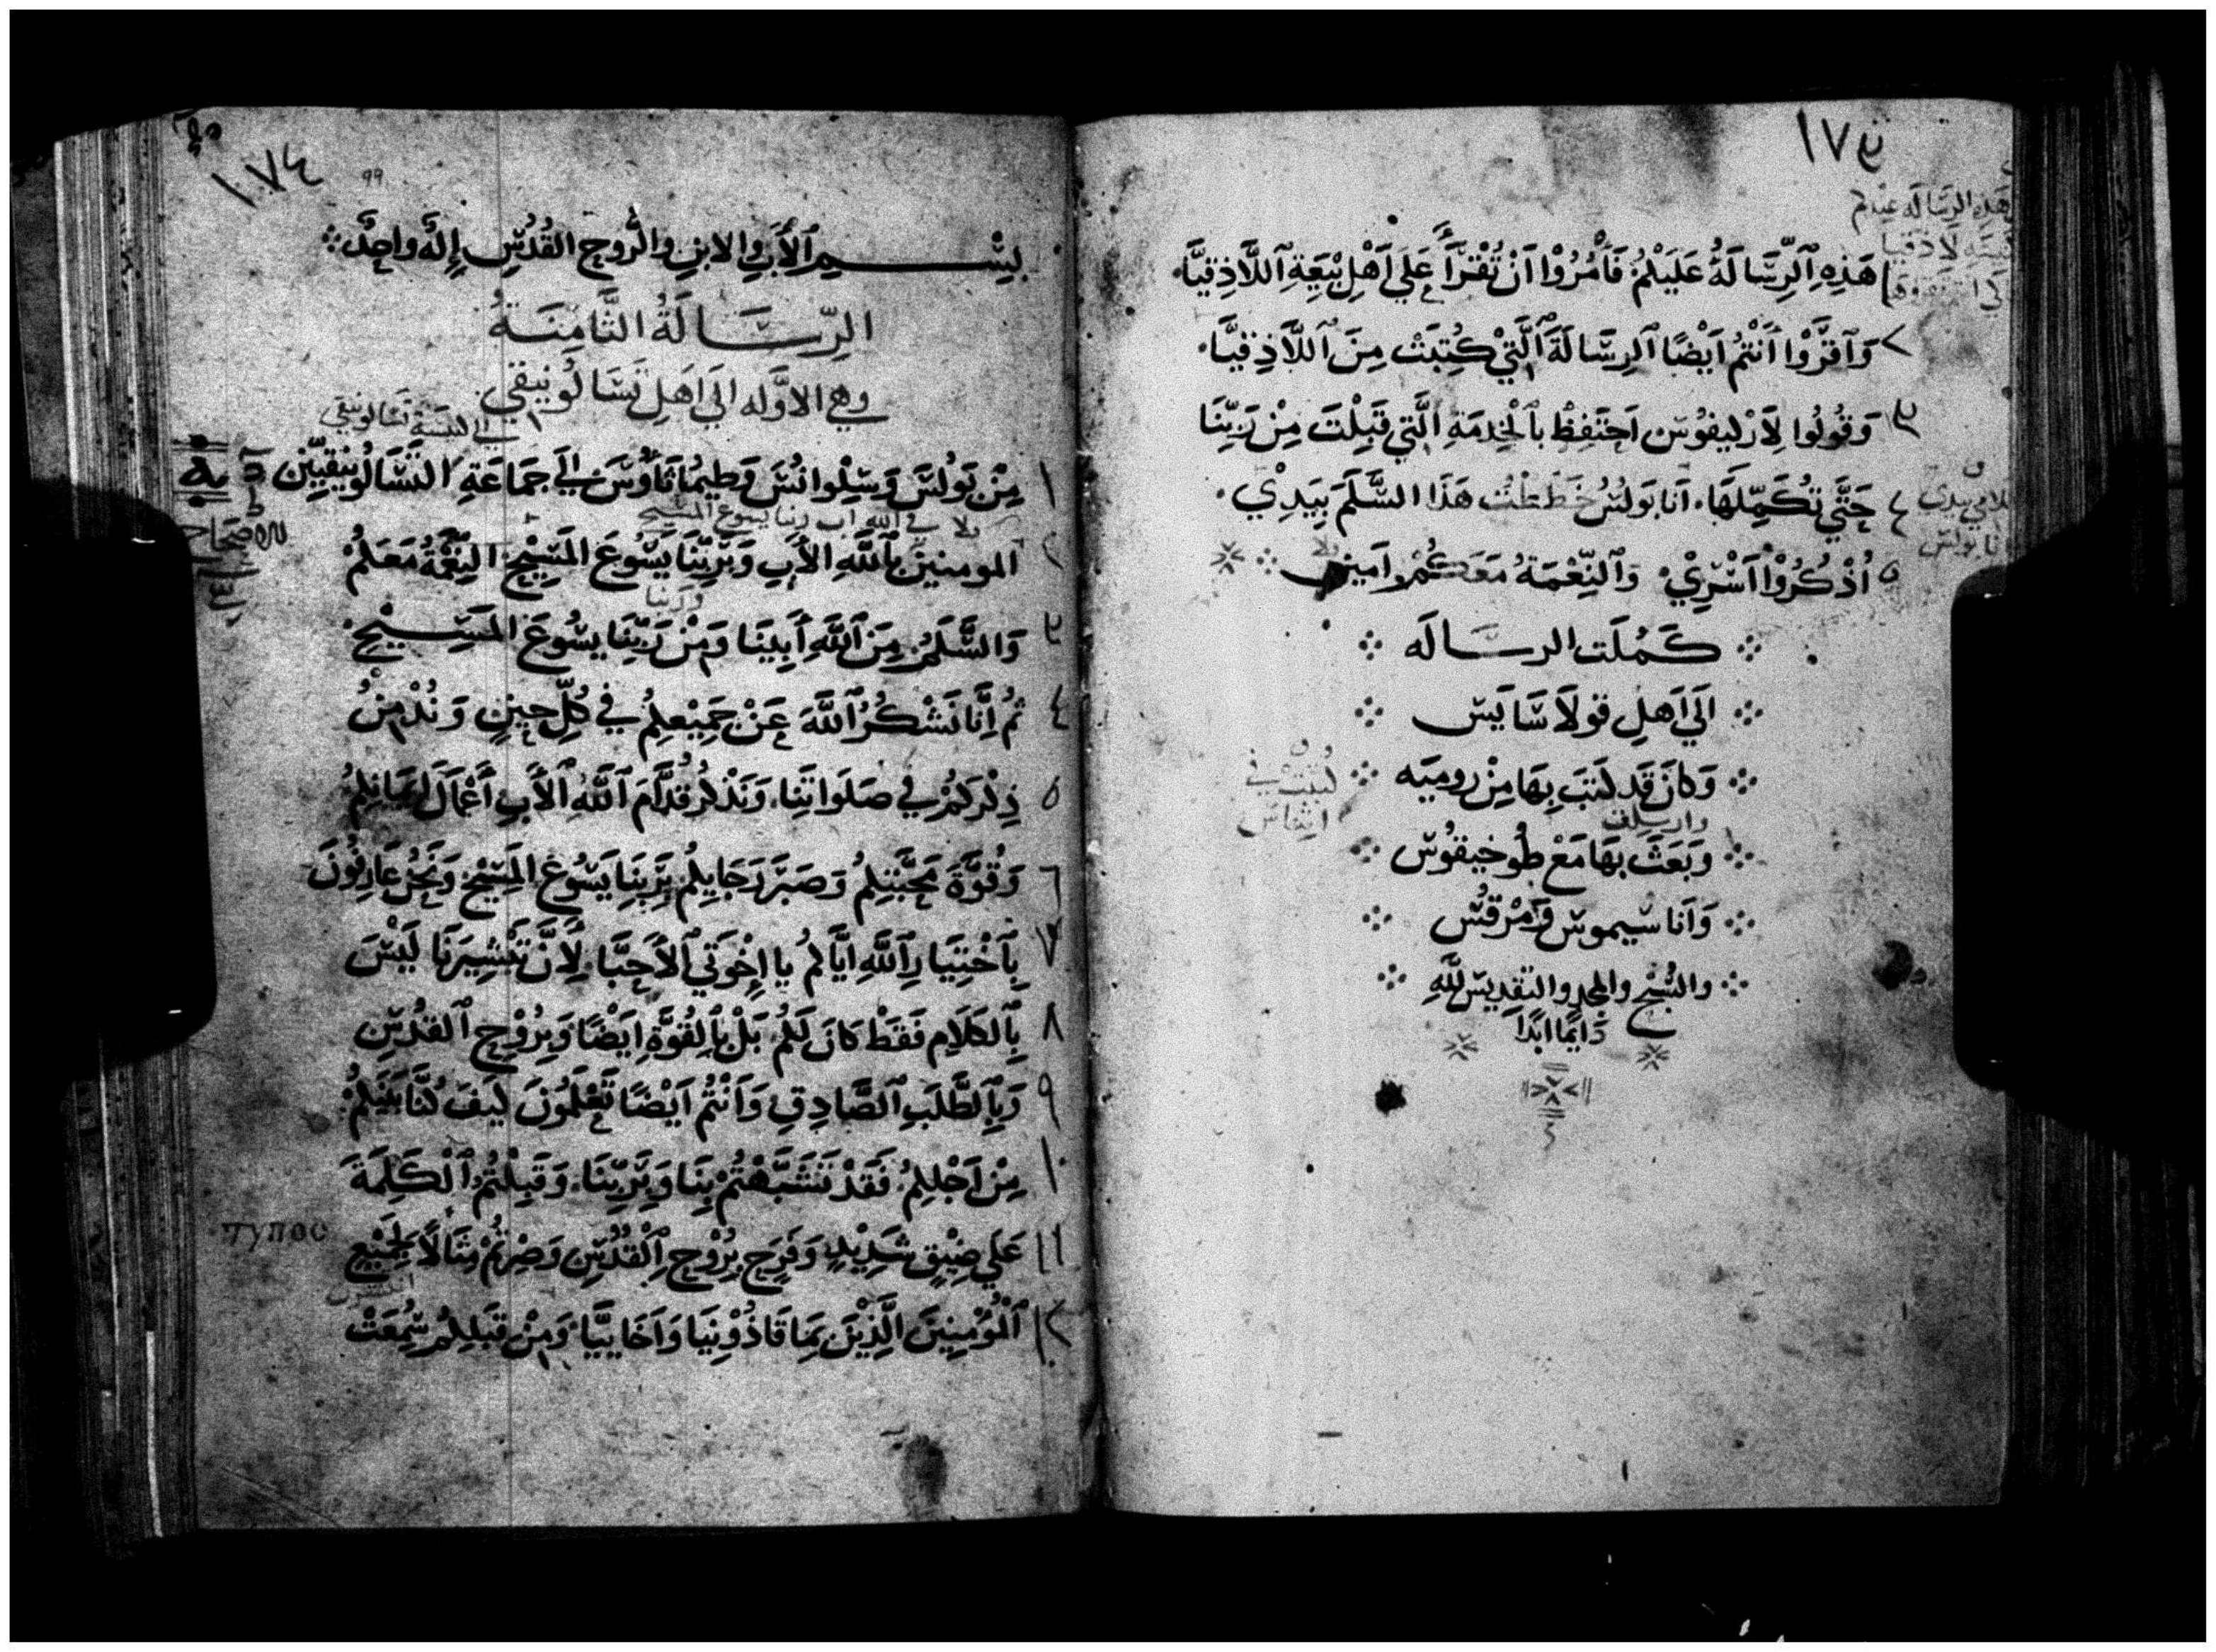 ١٧٣
هَذِهِ ٱلرِّسَالَةُ عَلَيْكُمْ فَأْمُرُوْا اَنْ تُقْرَأَ عَلَي اَهْلِ بْيَعَةِ ٱللَّاذِقِيَّا٠
٢ وَٱقرَؤْا أَنْتُمْ اَيْضًا ٱلرِسَّالَةَ ٱلَّتِيْ كُتِبَتْ مِنَ ٱللَّاذِقيَّا٠
٣ وَقُولُوا لِاَرْكيفوُس اَحتَفِظْ بٱلْخِدمَةِ الَّتِي قَبِلْتَ مِنْ رَبِّنَا
٤ حَتَّي تُكَمِّلَهَا٠ اَنا بَولُسُ خَطَطْتُ هَذَا السَّلَمَ بِيَدِيْ٠
٥ اُذْكُرُوْا اَسْرِيْ وَٱلنِّعْمَةُ مَعَكُمْ امين
كَمُلَت الرسَالَه
اَلَي اَهلِ قولاَسَّايَس
وَكاَنَ قَد كَتَبَ بِهَا مِنْ روميَه
كُتبَتْ في
اثِنَاس
وارسلت
وَبَعَثَ بهَا مَعْ طُوخيقوُس
وَاَناسَيموس وَمَرْقُس
والسُبْح والمجد والتقديس للَّهِ
دَايمًا ابَدًا
١٧٤
99
بِسْمِ ٱلْأَبِ والابنِ والرُوح القُدُسِ إِلَهٌ واحِدٌ
الرِّسَالَةُ الثَّامِنَةُ
وهي الاوَّله الَي اَهَلِ تَسَالُونيقي
١ مِنْ بَولُسَ وَسِلْوانُسَ وَطيمُاثَاوُسَ الَي جَمَاعَةِ التَسَالُونيقِيِّين
في الله اب ربنا يسوع المسيح
٢ المومنينَ بٱللَّهِ الأَبِ وَبرَبِّنَا يَسُوعَ المَسِيْحِ النِّعْمَةُ مَعَكُمْ
وربنا
٣ وَالسَّلَمُ مِنَ ٱللَّهِ أَبِينَا وَمِنْ رَبِّنَا يسُوعَ المَسِيْحِ
٤ ثمُ اِنَّا نَشْكُرُ ٱللَّهَ عَنْ جَمِيْعِكُمْ في كُلِّ حِينٍ وَنُدْمِنُ
٥ ذِكْرَكُمْ في صَلَوَاتِنَا٠ وَنَذْكُرُ قُدَّامَ ٱللَّهِ ٱلأَبِ أَعْمَالَ اِيمَانِكُمْ
٦ وَقُوَّةَ مَحَبَّتِكُمُ وَصَبْرَ رَجَايِكُمْ بِرَبِّنَا يَسُوعَ المَسِيْحِ وَنَحْنُ عَارِفُونَ
٧ بِٱخْتِيَارِ ٱللَّهِ ايَّاكُمُ يا إِخْوَتي ٱلاَحِبَّا٠ لِاَنَّ تَبْشِيرَنَا لَيْسَ
٨ بِٱلكَلَامِ فَقَطْ كَانَ لَكُمُ بَلْ بِٱلقُوَّةِ اَيْضًا وَبِرُوْحِ ٱلقُدُسِ
٩ وَبِٱلطَّلَبِ ٱلصَّادِقِ وَاَنْتُمُ اَيْضًا تَعْلَمُونَ كَيفَ كُنَّا بَيْنَكُمْ
١٠ مِنْ اَجْلِكُمُ فَقَدْ تَشَبَّهْتُمْ بِنَا وَبِرَبِّنَا٠ وَقَبِلْتُمُ ٱلْكَلِمَةَ
τυπος
١١ عَلَي ضِيْقٍ شَدِيْدٍ وَفَرَحِ بِرُوْحِ ٱلْقُدُسِ وَصِرْتُمْ مِثَالًا لِجَمِيْعِ
١٢ ٱلْمُوْمِنِينَ الَّذِيْنَ بِمَاقَاذُوْنِيَا وَاَخَايِيَّا وَمِنْ قِبَلِكُمْ سُمِعَتْ